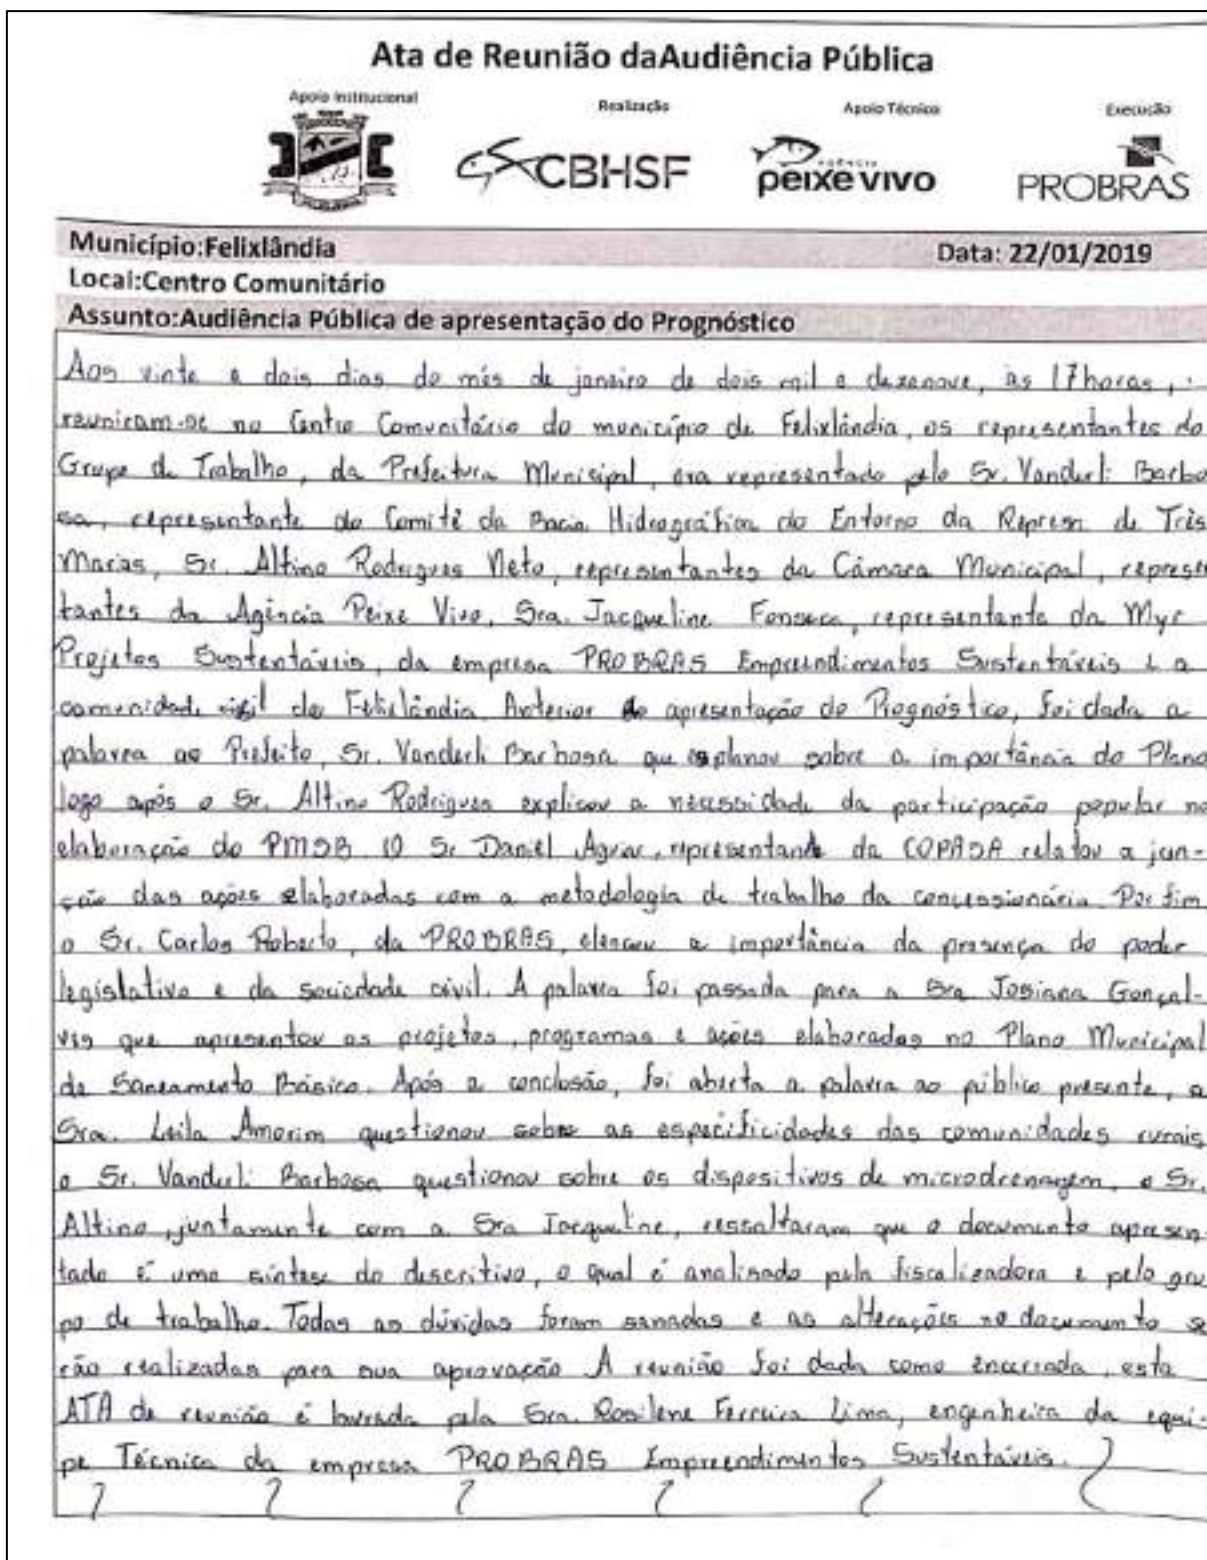 Ata de Reunião daAudiência Pública
Apoio Institucional
Realização
Apoio Técnico
Execução
CBHSF
AGÊNCIA
peixe vivo
PROBRAS
Município:Felixlândia
Data: 22/01/2019
Local:Centro Comunitário
Assunto:Audiência Pública de apresentação do Prognóstico
Aos vinte e dois dias do mês de janeiro de dois mil e dezenove, às 17horas,
reuniram-se no Centro Comunitário do município de Felixlândia, os representantes do
Grupo de Trabalho, da Prefeitura Municipal, ora representado pelo Sr. Vanderli Barbo
sa, representante do Comitê da Bacia Hidrográfica do Entorno da Represa de Três
Marias, Sr. Altino Rodrigues Neto, representantes da Câmara Municipal, represen
tantes da Agência Peixe Vivo, Sra. Jacqueline Fonseca, representante da Myr
Projetos Sustentáveis, da empresa PROBRAS Empreendimentos Sustentáveis e a
comunidade civil de Felixlândia. Anterior apresentação do Prognóstico, foi dada a
palavra ao Prefeito, Sr. Vanderli Barbosa que explanou sobre a importância do Plano
logo após o Sr. Altino Rodrigues explicou a necessidade da participação popular na
elaboração do PMSB. O Sr Daniel Aguiar, representante da COPASA relatou a jun-
ção das ações elaboradas com a metodologia de trabalho da concessionária. Por fim
o Sr. Carlos Roberto, da PROBRAS, elencou a importância da presença do poder
legislativo e da sociedade civil. A palavra foi passada para a Sra. Josiana Gonçal-
ves que apresentou os projetos, programas e ações elaboradas no Plano Municipal
de Saneamento Básico. Após a conclusão, foi aberta a palavra ao público presente, a
Sra. Leila Amorim questionou sobre as especificidades das comunidades rurais
o Sr. Vanderli Barbosa questionou sobre os dispositivos de microdrenagem, o Sr.
Altino, juntamente com a Sra Jacqueline, ressaltaram que o documento apresen-
tado é uma síntese do descritivo, o qual é analisado pela fiscalizadora e pelo gru
po de trabalho. Todas as dúvidas foram sanadas e as alterações no documento se
rão realizadas para sua aprovação A reunião foi dada como encerrada, esta
ATA de reunião é lavrada pela Sra. Rosilene Ferreira Lima, engenheira da equi-
pe Técnica da empresa PROBRAS Empreendimentos Sustentáveis.